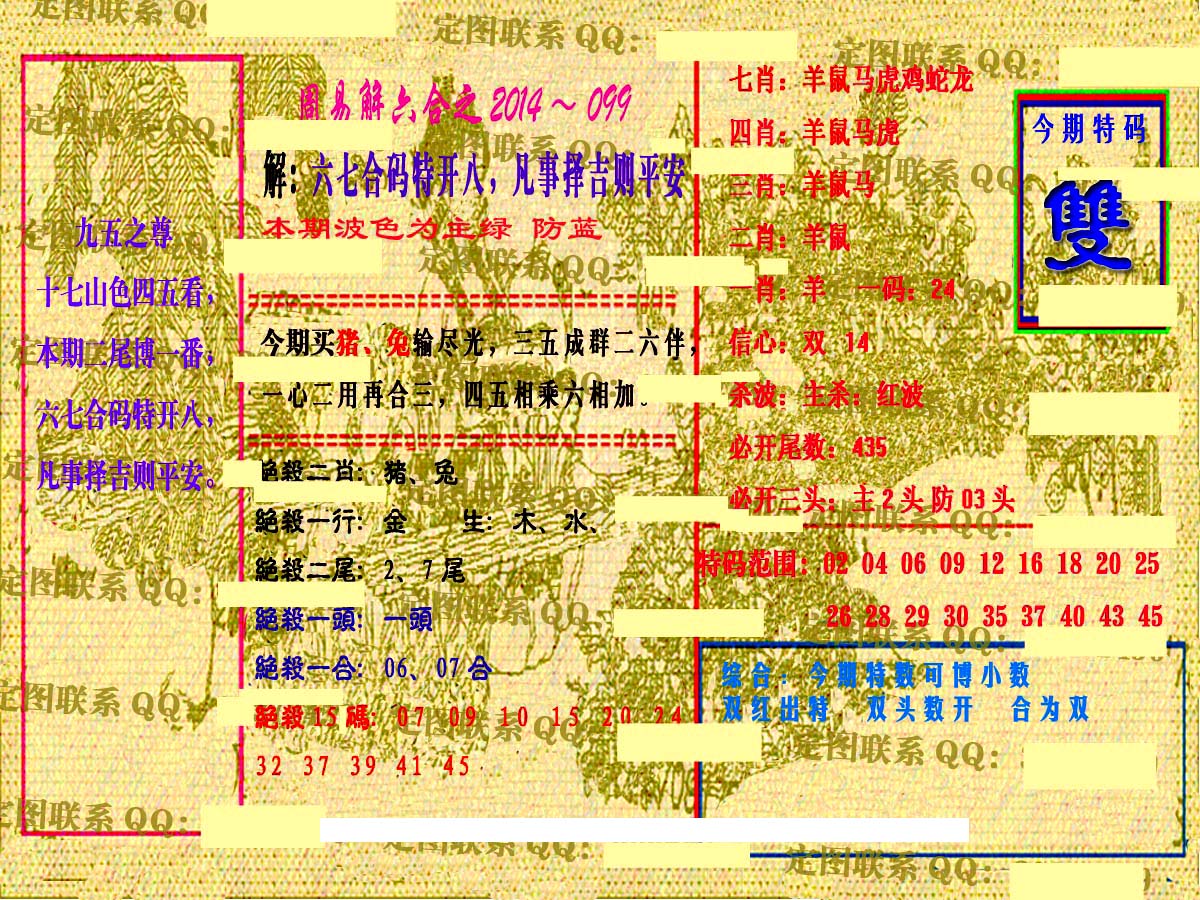 周易解六合之2014～099
解：六七合码特开八，凡事择吉则平安
本期波色为主绿 防蓝
九五之尊
十七山色四五看，
本期二尾博一番，
六七合码特开八，
凡事择吉则平安。
今期买猪、兔输尽光，三五成群二六伴，
一心二用再合三，四五相乘六相加。
絕殺二肖：猪、兔
絕殺一行：金 生：木、水、
絕殺二尾：2、7尾
絕殺一頭：一頭
絕殺一合：06、07合
絕殺15碼：07 09 10 15 20 24
32 37 39 41 45
七肖：羊鼠马虎鸡蛇龙
四肖：羊鼠马虎
三肖：羊鼠马
二肖：羊鼠
一肖：羊 一码：24
信心：双 14
杀波：主杀：红波
必开尾数：435
必开三头：主2头防03头
特码范围：02 04 06 09 12 16 18 20 25
26 28 29 30 35 37 40 43 45
今期特码
雙
综合：今期特数可博小数
双红出特 双头数开 合为双
定图联系QQ：
定图联系QQ：
定图联系QQ：
定图联系QQ：
定图联系QQ：
定图联系QQ：
定图联系QQ：
定图联系QQ：
定图联系QQ：
定图联系QQ：